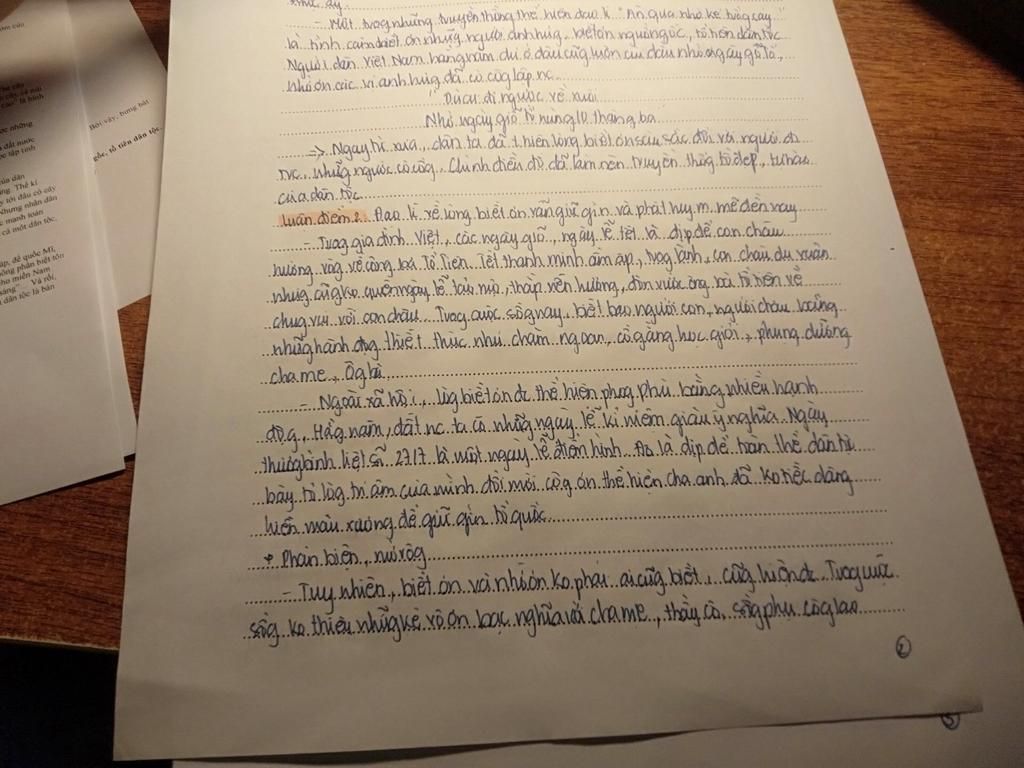 - Một trong những truyền thống thể hiện đạo lí "Ăn quả nhớ kẻ trồng cây
là tình cảm biết ơn những người anh hùg, biết ơn nguồn gốc, tổ tiên dân tộc
Người dân Việt Nam hằng năm dù ở đâu cũg luôn
nhớ ơn các vị anh hùg đã có côg lập nc.
"Dù cu đi ngược về xuôi
Nhớ ngày giỗ tổ mùng 10 tháng ba
-> Ngay từ xưa, dân ta đã thiện lòng biết ơn sâu sắc đối với người đi
trc, những người có công. Chính điều đó đã làm nên truyền thốg tốt đẹp, tự hào
của dân tộc
Luận điểm 2. Đạo lí về lòng biết ơn vẫn giữ gìn và phát huy m.mẽ đến nay
- Trog gia đình Việt, các ngày giỗ, ngày lễ tết là dịp để con cháu
hướng vòg về côg bà Tổ Tiên. Tết thanh minh ấm áp, trog lành, con cháu du xuân
nhưg cũg ko quên ngày lễ tảo mộ, thắp nén hương, đón rước ông bà tổ tiên về
chug vui với con cháu. Trog cuộc sốg nay, biết bao người con, người cháu bằng
nhữg hành độg thiết thực như chăm ngoan, cố gắng học giỏi, phụng dưỡng
cha mẹ, ôg bà
- Ngoài xã hội, lòg biết ơn đc thể hiện phog phú bằng nhiều hành
độg. Hằg năm, đất nc ta có những ngày lễ kỉ niệm giàu ý nghĩa. Ngày
thươg binh liệt sĩ 27/7 là một ngày lễ điển hình. Đó là dịp để toàn thể dân tộc
bày tỏ lòg tri ân của mình đối với côg ơn thế hiện cha anh đã ko tiếc dâng
hiến máu xương để giữ gìn tổ quốc
* Phản biện, mở rộg
- Tuy nhiên, biết ơn và nhớ ơn ko phải ai cũg biết, cũg hiện đc. Trog cuộc
sốg ko thiếu nhữg kẻ vô ơn bạc nghĩa với cha mẹ, thầy cô, sốg phụ côg lao
2
5
Bởi vậy, bưng bát
gốc, tổ tiên dân tộc.
đất nước
của dân
Thế kỉ
Nhưng nhân dân
cả một dân tộc.
đế quốc Mĩ,
miền Nam
Và rồi,
dân tộc là bản